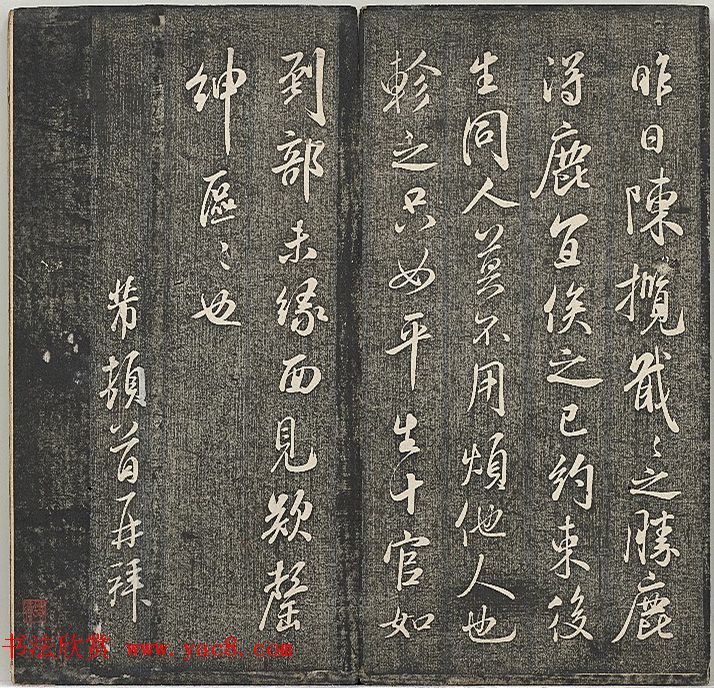 昨日陳攬戢々之勝鹿
得鹿宜俟之已約束後
生同人莫不用煩他人也
軫之只如平生十官如
到部未緣面見欵罄
紳區々也
芾頓首再拜
书法欣赏 www.yac8.com